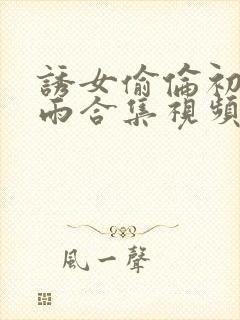 誘女偷倫初
雨合集視頻
風一聲